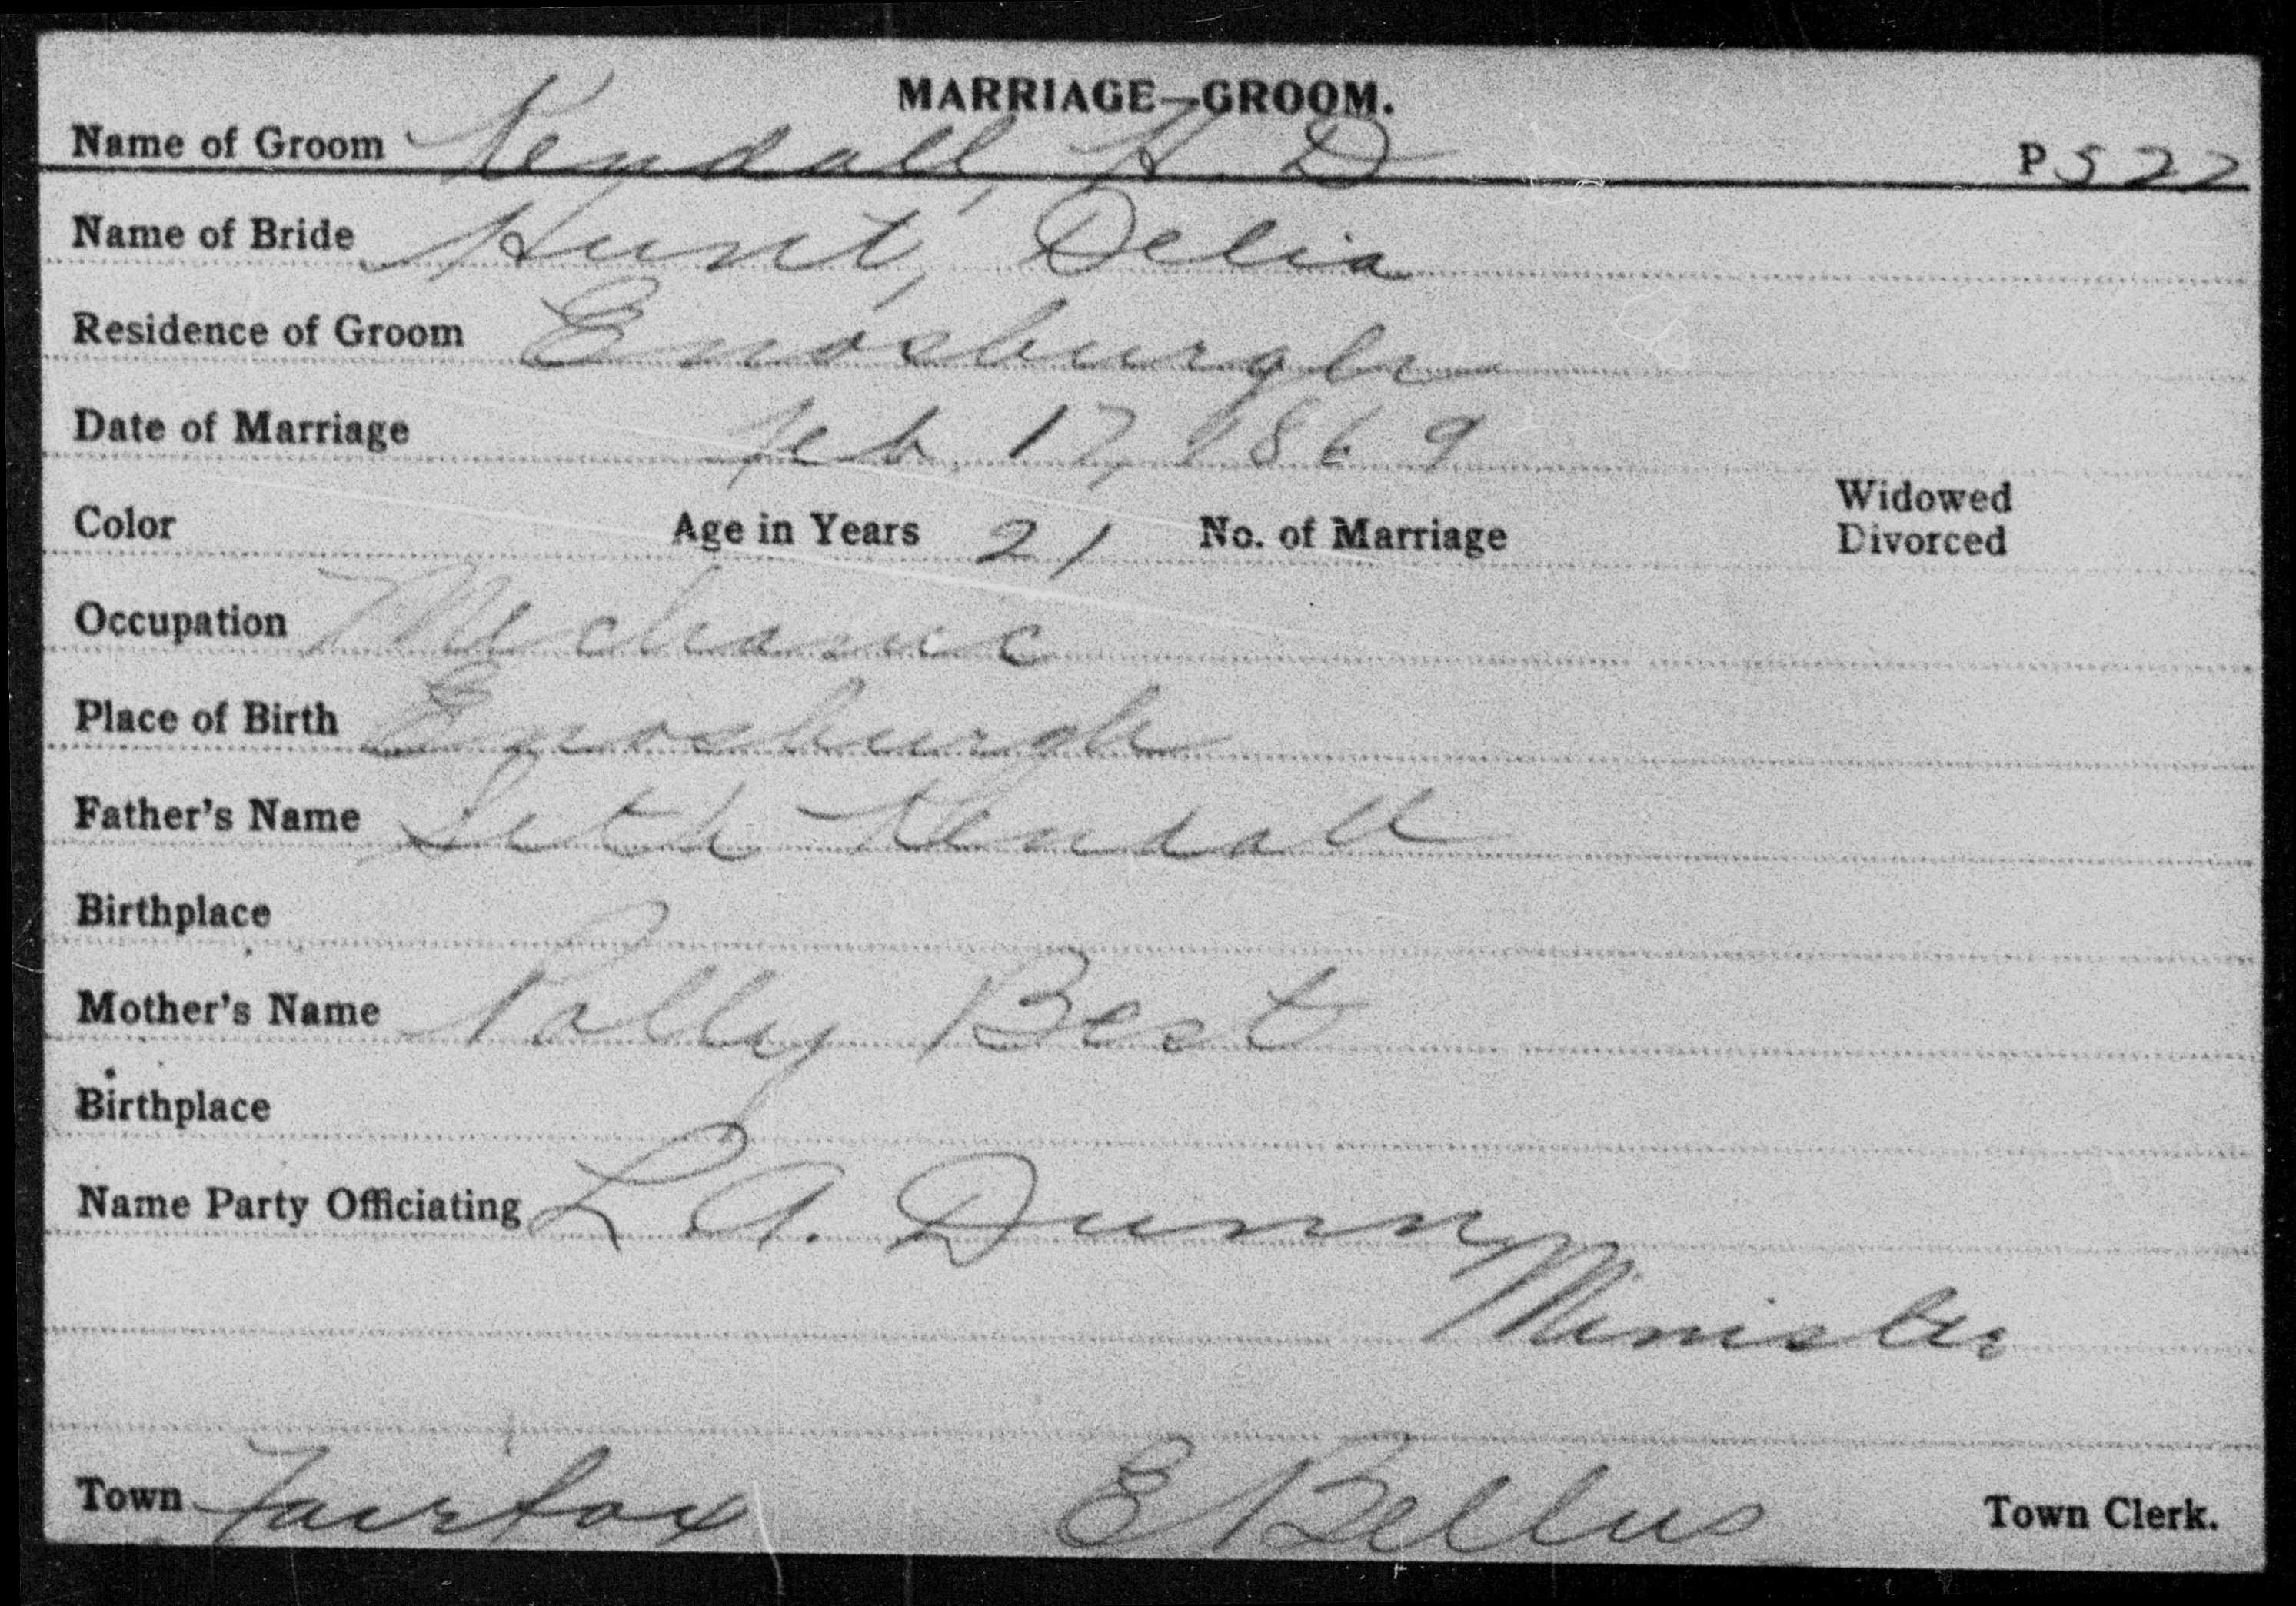 MARRIAGE—GROOM.
Name of Groom Kendall, H. D P 522
Name of Bride Hunt, Delia
Residence of Groom Enosburgh
Date of Marriage Feb 17, 1869
Color Age in Years 21 No. of Marriage Widowed Divorced
Occupation Mechanic
Place of Birth Enosburgh
Father's Name Seth Kendall
Birthplace
Mother's Name Polly Best
Birthplace
Name Party Officiating L. A. Dunn,
Minister
Town Fairfax E Bellus Town Clerk.